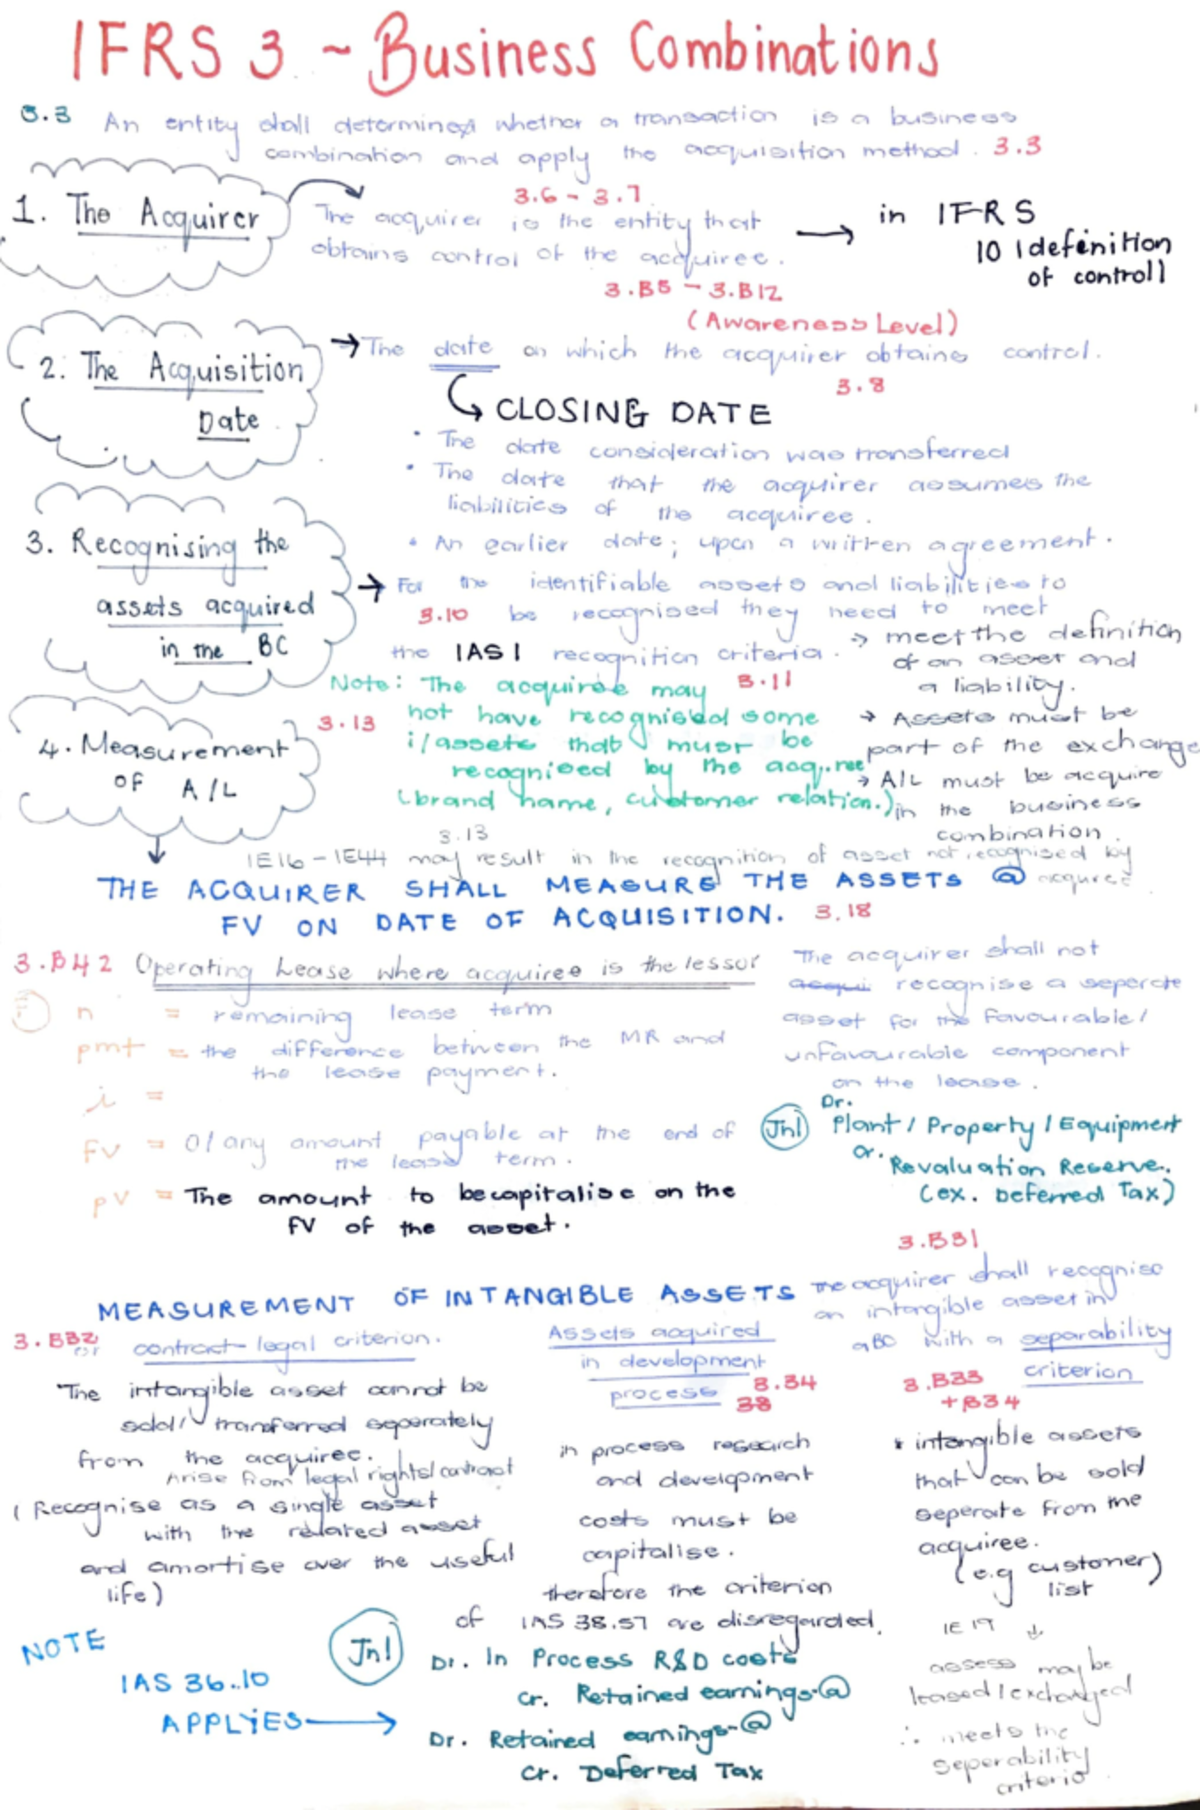 IFRS 3 ~ Business Combinations
3.3 An entity shall determines whether a transaction is a business
combination and apply the acquisition method. 3.3
1. The Acquirer
3.6 - 3.7
The acquirer is the entity that
obtains control of the acquiree.
3.B5 - 3.B12
(Awareness Level)
in IFRS
10 (definition
of control)
2. The Acquisition
Date
The date on which the acquirer obtains control.
3.8
CLOSING DATE
• The date consideration was transferred
• The date that the acquirer assumes the
liabilities of the acquiree.
• An earlier date; upon a written agreement.
3. Recognising the
assets acquired
in the BC
For the identifiable assets and liabilities to
3.10 be recognised they need to meet
the IAS 1 recognition criteria.
→ meet the definition
of an asset and
a liability.
→ Assets must be
part of the exchange
→ A/L must be acquire
in the business
combination.
Note: The acquiree may 3.11
3.13 not have recognised some
i/assets that must be
recognised by the
(brand name, customer relation.)
4. Measurement
of A/L
3.13
IE16 - IE44 may result in the recognition of asset not recognised by
THE ACQUIRER SHALL MEASURE THE ASSETS @
FV ON DATE OF ACQUISITION. 3.18
3.B42 Operating Lease where acquiree is the lessor
n = remaining lease term
pmt = the difference between the MR and
the lease payment.
i =
FV = 0/any amount payable at the end of
the lease term.
PV = The amount to be capitalise on the
FV of the asset.
The acquirer shall not
acqui recognise a seperate
asset for the favourable/
unfavourable component
on the lease.
Jnl
Dr.
Plant / Property / Equipment
or. Revaluation Reserve.
(ex. Deferred Tax)
3.B31
MEASUREMENT OF INTANGIBLE ASSETS
The acquirer shall recognise
an intangible asset in
a BC with a separability
criterion
3.B32 or contract-legal criterion.
The intangible asset cannot be
sold/ transferred seperately
from the acquiree.
Arise from legal rights/contract
(Recognise as a single asset
with the related asset
and amortise over the useful
life)
Assets acquired
in development
process 3.34
38
in process research
and development
costs must be
capitalise.
therefore the criterion
of IAS 38.57 are disregarded.
3.B33
+ B34
* intangible assets
that can be sold
seperate from the
acquiree.
(e.g customer)
list
IE 19 ↓
assess may be
leased / exchanged
∴ meets the
seperability
criteria
NOTE
IAS 36.10
APPLYIES →
Jnl
Dr. In Process R&D costs
Cr. Retained earnings-@
Dr. Retained earnings-@
Cr. Deferred Tax